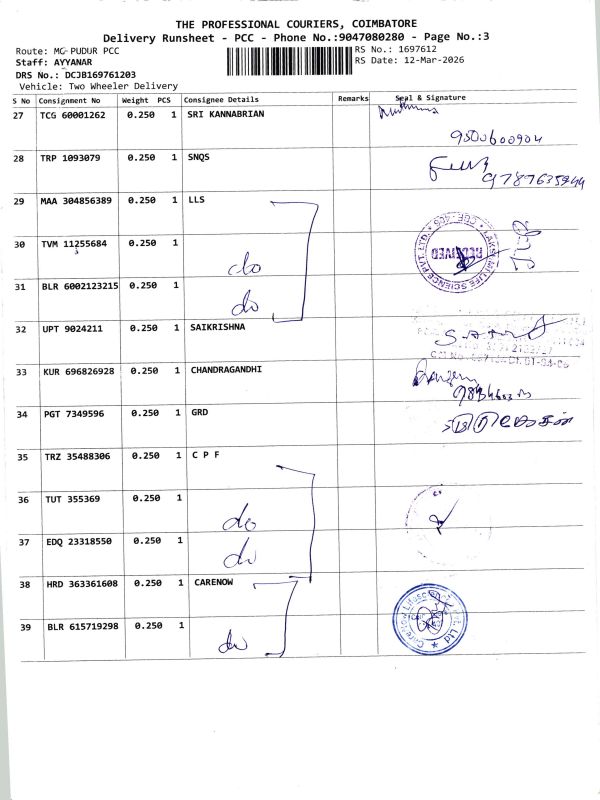 THE PROFESSIONAL COURIERS, COIMBATORE
Delivery Runsheet - PCC - Phone No.:9047080280 - Page No.:3
Route: MG-PUDUR PCC
RS No.: 1697612
Staff: AYYANAR
RS Date: 12-Mar-2026
DRS No.: DCJB169761203
Vehicle: Two Wheeler Delivery
S No Consignment No Weight PCS Consignee Details Remarks Seal & Signature
27 TCG 60001262 0.250 1 SRI KANNABRIAN
9500600904
28 TRP 1093079 0.250 1 SNQS
9787635944
29 MAA 304856389 0.250 1 LLS
30 TVM 11255684 0.250 1 do
RECEIVED
31 BLR 6002123215 0.250 1 do
32 UPT 9024211 0.250 1 SAIKRISHNA
33 KUR 696826928 0.250 1 CHANDRAGANDHI
34 PGT 7349596 0.250 1 GRD
35 TRZ 35488306 1 C P F
0.250
36 TUT 355369 0.250 1 do
37 EDQ 23318550 0.250 1 do
38 HRD 363361608 0.250 1 CARENOW
39 BLR 615719298 0.250 1 do